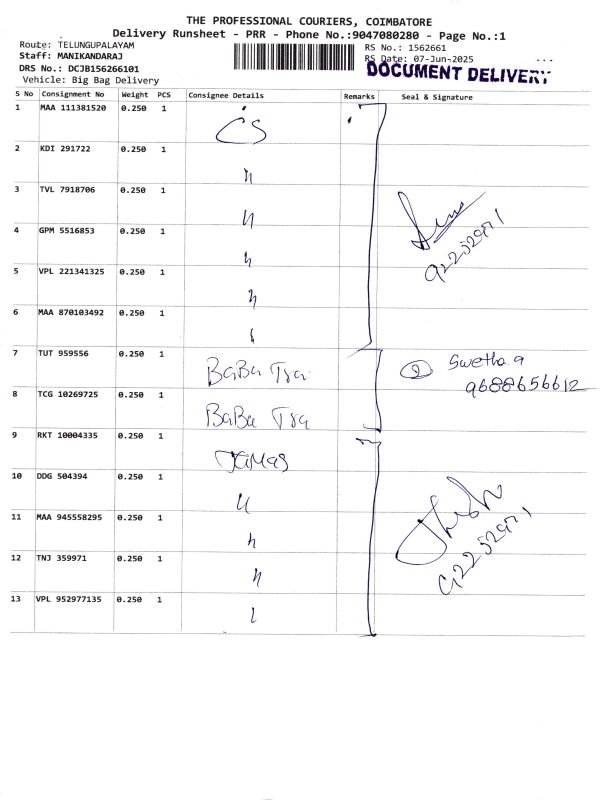 THE PROFESSIONAL COURIERS, COIMBATORE
Delivery Runsheet - PRR - Phone No.:9047080280 - Page No.:1
Route: TELUNGUPALAYAM
Staff: MANIKANDARAJ
DRS No.: DCJB156266101
Vehicle: Big Bag Delivery
RS No.: 1562661
RS Date: 07-Jun-2025
DOCUMENT DELIVERY
S No Consignment No Weight PCS Consignee Details Remarks Seal & Signature
1 MAA 111381520 0.250 1 CS
2 KDI 291722 0.250 1 〃
3 TVL 7918706 0.250 1 〃
4 GPM 5516853 0.250 1 〃
5 VPL 221341325 0.250 1 〃
6 MAA 870103492 0.250 1
7 TUT 959556 0.250 1 BaBa Tsa
8 TCG 10269725 0.250 1 BaBa Tsa
② Swetha.a
9688656612
9 RKT 10004335 0.250 1
10 DDG 504394 0.250 1 〃
11 MAA 945558295 0.250 1 〃
12 TNJ 359971 0.250 1 〃
13 VPL 952977135 0.250 1